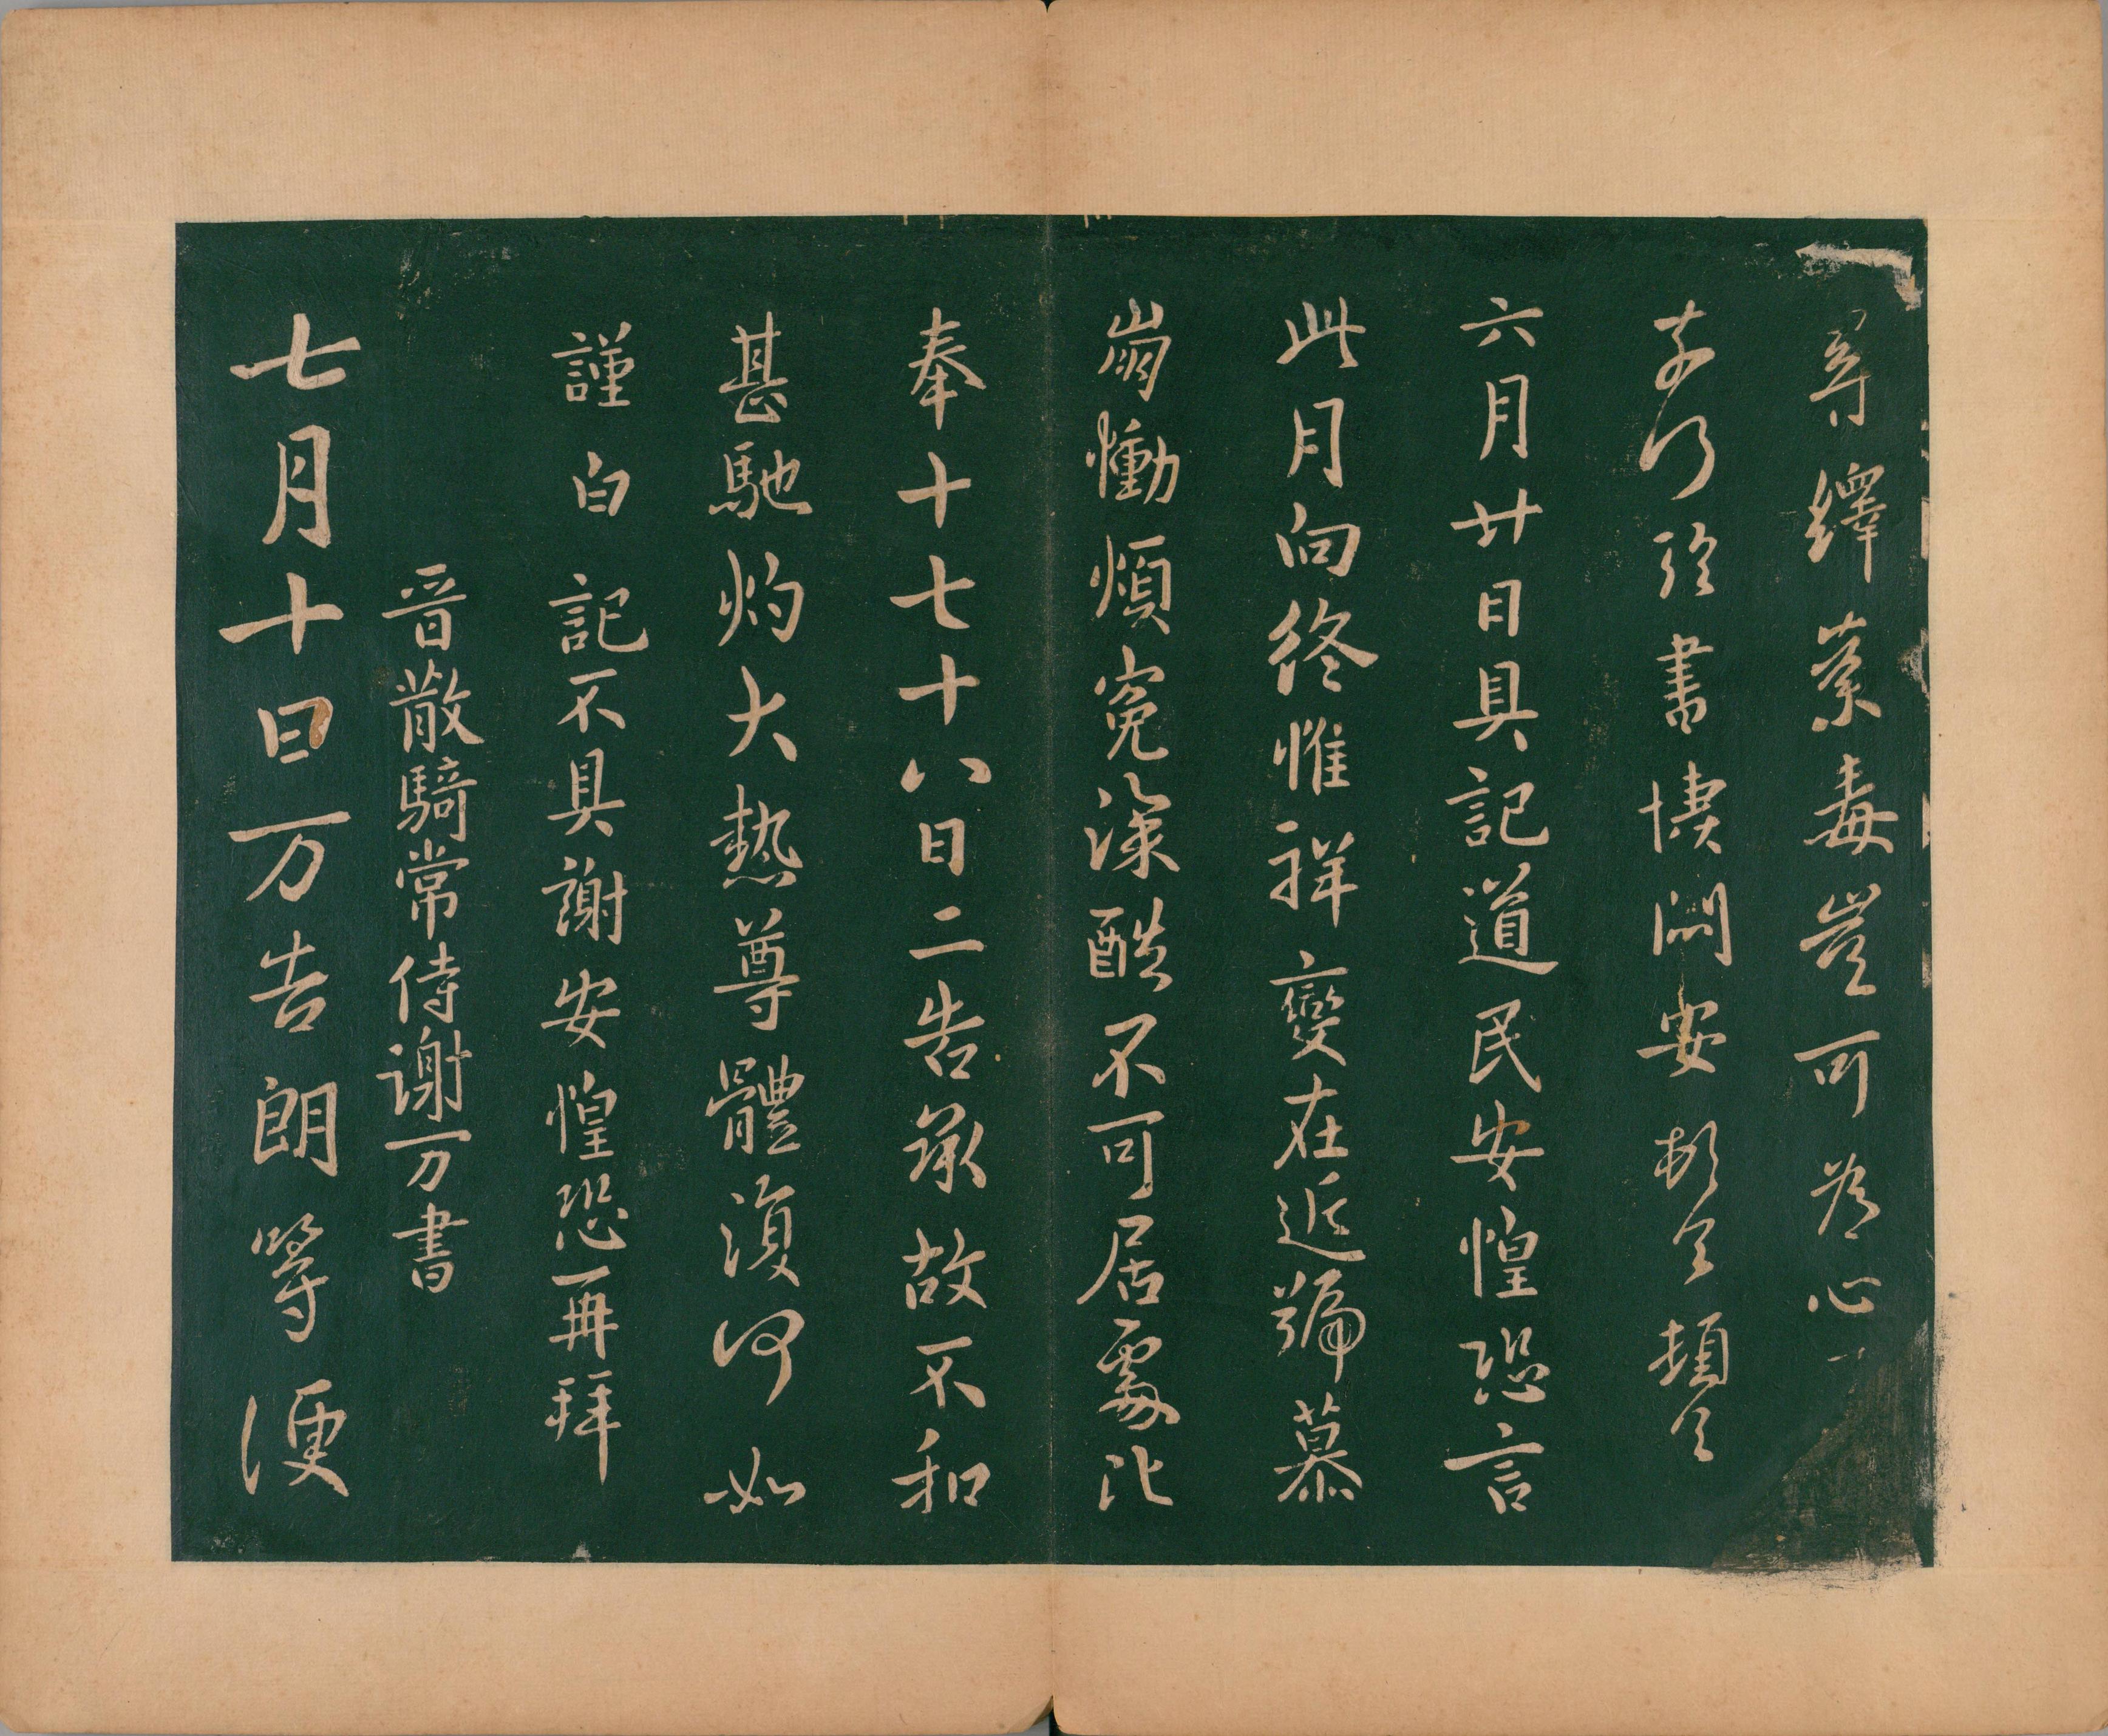 尋繹荼毒豈可為心
奈何臨書悽悶安頓首頓首
六月廿日具記道民安惶恐言
此月向終惟祥變在近號慕
崩慟煩冤深酷不可居處比
奉十七十八日二告承故不和
甚馳灼大熱尊體復何如
謹白記不具謝安惶恐再拜
晉散騎常侍謝万書
七月十日万告朗等便